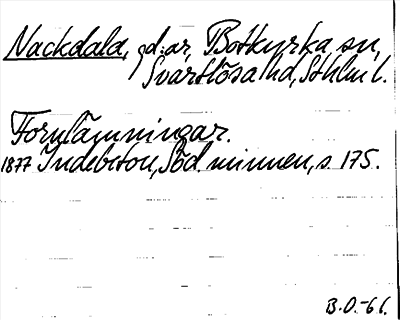 Nackdala, gd:ar, Botkyrka sn,
Svartlösa hd, Sthlm l.
Fornlämningar.
1877 Indebetou, Söd. minnen, s. 175.
B.O.-61.